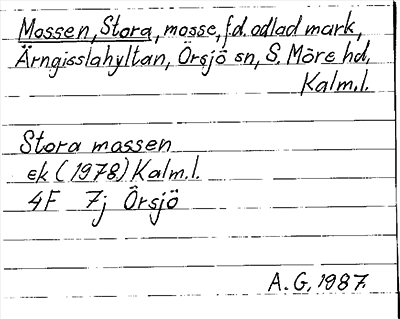 Mossen, Stora, mosse, f.d. odlad mark,
Ärngisslahyltan, Örsjö sn, S. Möre hd,
Kalm.l.
Stora mossen
ek (1978) Kalm.l.
4F 7j Örsjö
A.G. 1987